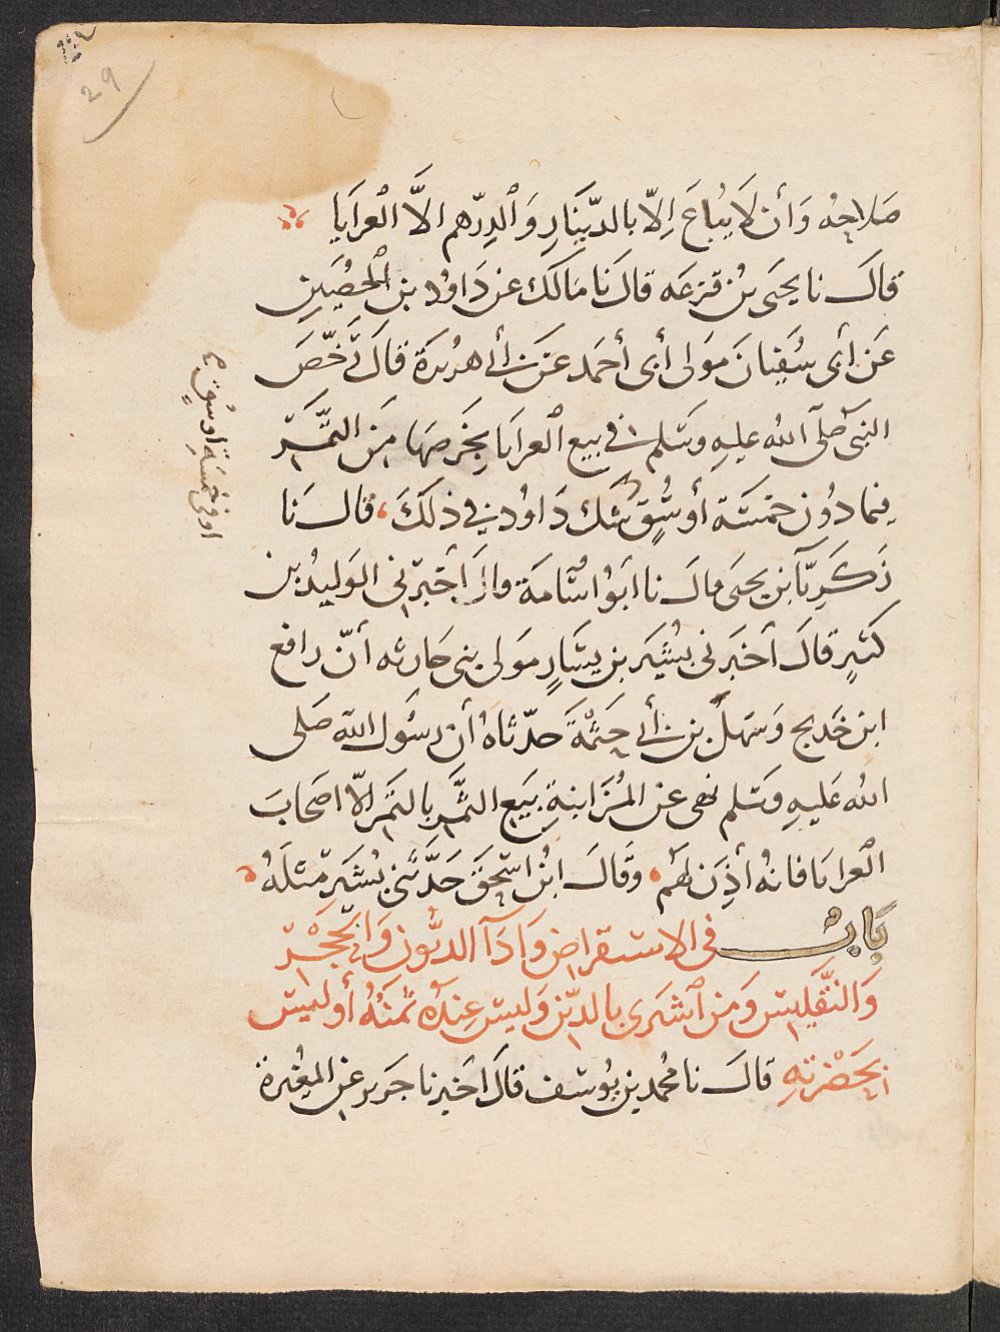 29
صَلاحِهُ وَأن لَا يُبَاعَ اِلاّ بالدّيَنَارِ وَالدِرّهم الاَّ الْعرَايَا
قالَ نا يحيَى بْن قزعَه قالَ نَا مَالكَ عن دَاوُد بن الْحصَيِن
عَن أبى سُفيَانَ مَولى أبى أحمَد عَن أبى هرُيرَة قالَ رَخّصَ
النبى صَلى الله عليهِ وسَلم فى بيع العرَايَا بِخَرصَهَا مِنَ التَّمرّ
فِيمَا دُون خمَسَة أوسُقٍ شَكَ دَاوُد فى ذلكَ، قالَ نَا
زَكرِيّآ بن يحيَى قالَ نا ابَوُ اسُامَة قالَ اَخبَرَنى الوَليدُ بن
كَثيرٍ قالَ اَخبَرنى بشُيَر بن يسَارٍ مَولى بنى حَارثه أنّ رافع
ابن خَديج وَسَهلَ بن أبى حَثْمَةَ حَدّثَاهُ أن رسَوُل الله صَلى
الله عَليهِ وسَلم نهى عن المُزَابنةِ بيَعِ الثَّمَرِ بالتَمَر الاّ اصحَابَ
الْعرايَا فانهُ أذِنَ لهَمُ، وَقالَ ابنُ اسحَقَ حَدَّثَنى بُشَير مّثلَهُ
بَابُ فى الاستقراض وَادَآ الدّيُون وَالحَجْرّ
وَالتّفليس وَمَن اشترَى بالدّين وَليسَ عِندَهُ ثمَنَهُ أو ليسَ
بحَضْرَتهِ قالَ نا مُحمد بن يوُسف قالَ اَخبَرنا جَرير عَن المغيرة
او فى خمَسَةِ اوسُقٍ